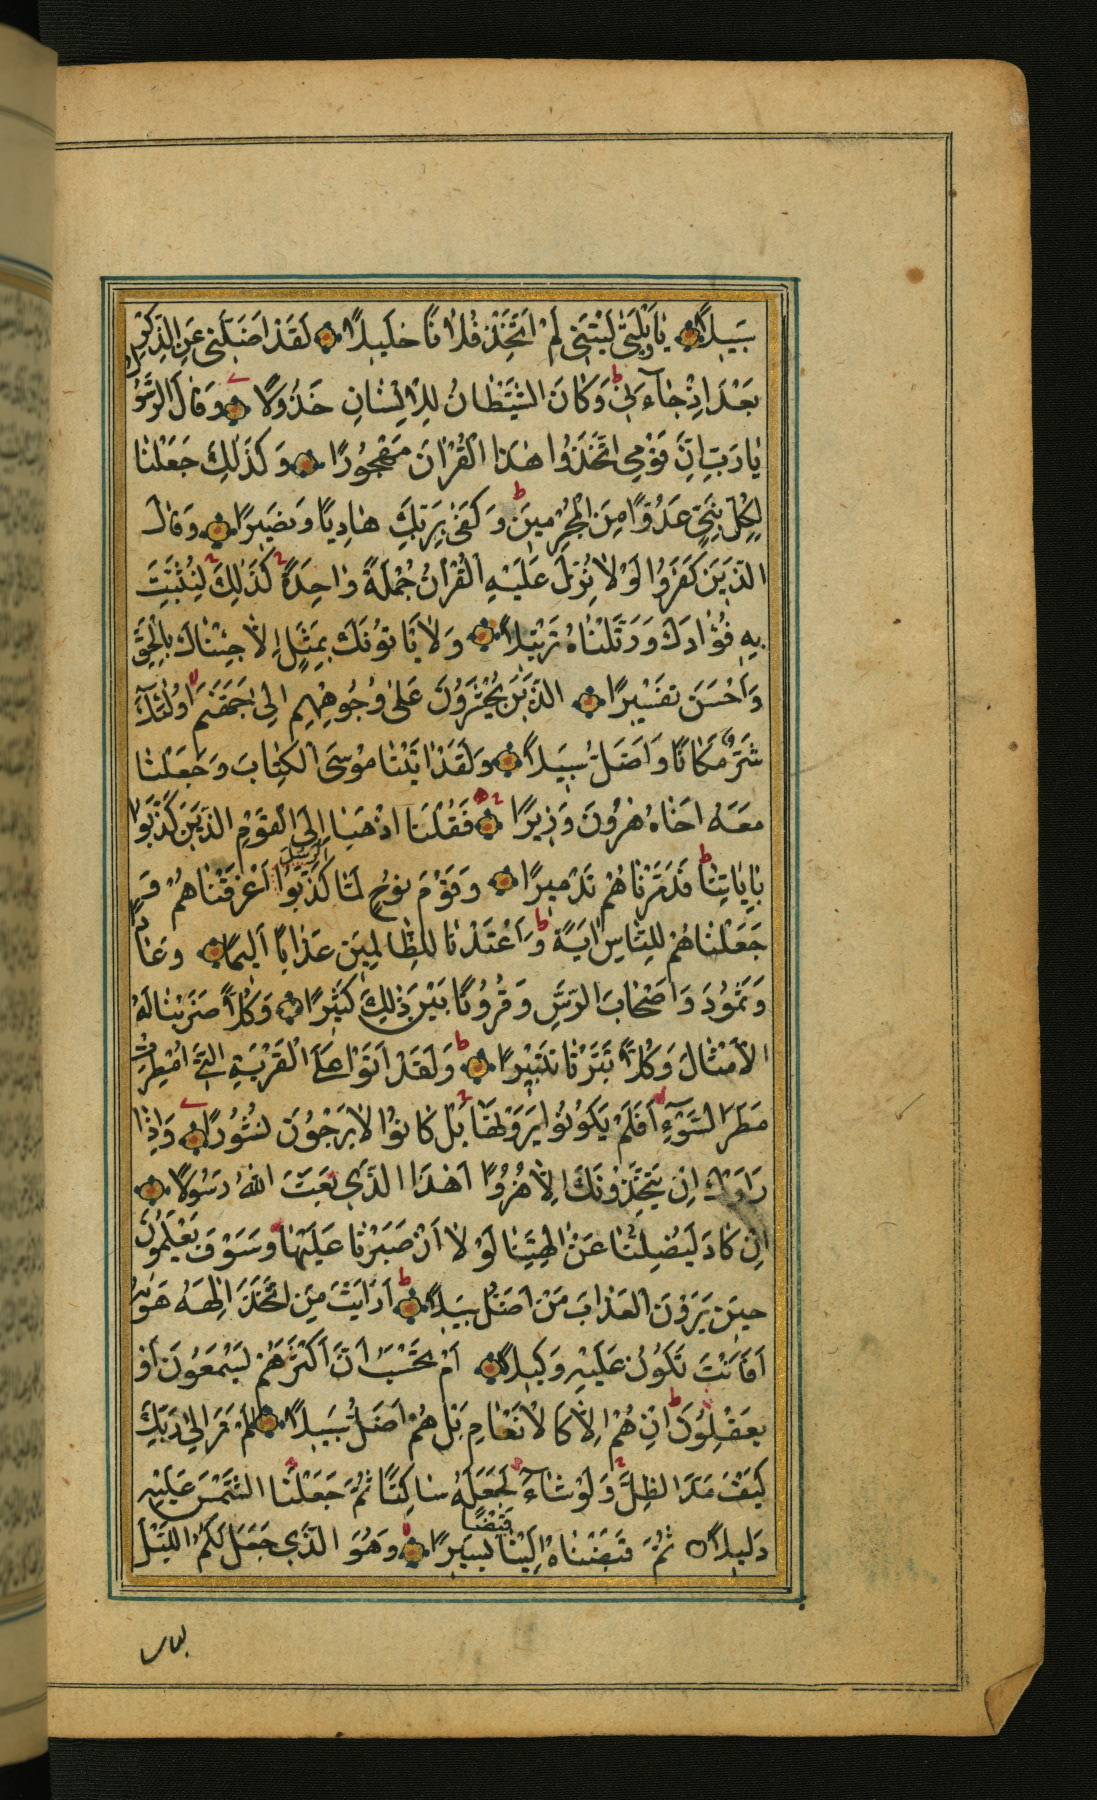 سَبِيلاً يَاوَيْلَتَى لَيْتَنِي لَمْ اَتَّخِذْ فُلَانًا خَلِيلاً لَقَدْ اَضَلَّنِي عَنِ الذِّكْرِ
بَعْدَ اِذْ جَاءَنِي وَكَانَ الشَّيْطَانُ لِلْاِنْسَانِ خَذُولًا وَقَالَ الرَّسُولُ
يَارَبِّ اِنَّ قَوْمِي اتَّخَذُوا هٰذَا الْقُرْاٰنَ مَهْجُورًا وَكَذٰلِكَ جَعَلْنَا
لِكُلِّ نَبِيٍّ عَدُوًّا مِنَ الْمُجْرِمِينَ وَكَفٰى بِرَبِّكَ هَادِيًا وَنَصِيرًا وَقَالَ
الَّذِينَ كَفَرُوا لَوْلَا نُزِّلَ عَلَيْهِ الْقُرْاٰنُ جُمْلَةً وَاحِدَةً كَذٰلِكَ لِنُثَبِّتَ
بِهِ فُؤَادَكَ وَرَتَّلْنَاهُ تَرْتِيلاً وَلَا يَاْتُونَكَ بِمَثَلٍ اِلَّا جِئْنَاكَ بِالْحَقِّ
وَاَحْسَنَ تَفْسِيرًا الَّذِينَ يُحْشَرُونَ عَلٰى وُجُوهِهِمْ اِلٰى جَهَنَّمَ اُولٰئِكَ
شَرٌّ مَكَانًا وَاَضَلُّ سَبِيلاً وَلَقَدْ اٰتَيْنَا مُوسَى الْكِتَابَ وَجَعَلْنَا
مَعَهُ اَخَاهُ هٰرُونَ وَزِيرًا فَقُلْنَا اذْهَبَا اِلَى الْقَوْمِ الَّذِينَ كَذَّبُوا
بِاٰيَاتِنَا فَدَمَّرْنَاهُمْ تَدْمِيرًا وَقَوْمَ نُوحٍ لَمَّا كَذَّبُوا الرُّسُلَ اَغْرَقْنَاهُمْ وَ
جَعَلْنَاهُمْ لِلنَّاسِ اٰيَةً وَاَعْتَدْنَا لِلظَّالِمِينَ عَذَابًا اَلِيمًا وَعَادًا
وَثَمُودَ وَاَصْحَابَ الرَّسِّ وَقُرُونًا بَيْنَ ذٰلِكَ كَثِيرًا وَكُلاًّ ضَرَبْنَا لَهُ
الْاَمْثَالَ وَكُلاًّ تَبَّرْنَا تَتْبِيرًا وَلَقَدْ اَتَوْا عَلَى الْقَرْيَةِ الَّتِي اُمْطِرَتْ
مَطَرَ السَّوْءِ اَفَلَمْ يَكُونُوا يَرَوْنَهَا بَلْ كَانُوا لَا يَرْجُونَ نُشُورًا وَاِذَا
رَاَوْكَ اِنْ يَتَّخِذُونَكَ اِلَّا هُزُوًا اَهٰذَا الَّذِي بَعَثَ اللهُ رَسُولًا
اِنْ كَادَ لَيُضِلُّنَا عَنْ اٰلِهَتِنَا لَوْلَا اَنْ صَبَرْنَا عَلَيْهَا وَسَوْفَ يَعْلَمُونَ
حِينَ يَرَوْنَ الْعَذَابَ مَنْ اَضَلُّ سَبِيلاً اَرَاَيْتَ مَنِ اتَّخَذَ اِلٰهَهُ هَوٰيهُ
اَفَاَنْتَ تَكُونُ عَلَيْهِ وَكِيلاً اَمْ تَحْسَبُ اَنَّ اَكْثَرَهُمْ يَسْمَعُونَ اَوْ
يَعْقِلُونَ اِنْ هُمْ اِلَّا كَالْاَنْعَامِ بَلْ هُمْ اَضَلُّ سَبِيلاً اَلَمْ تَرَ اِلٰى رَبِّكَ
كَيْفَ مَدَّ الظِّلَّ وَلَوْ شَاءَ لَجَعَلَهُ سَاكِنًا ثُمَّ جَعَلْنَا الشَّمْسَ عَلَيْهِ
دَلِيلاً ثُمَّ قَبَضْنَاهُ اِلَيْنَا قَبْضًا يَسِيرًا وَهُوَ الَّذِي جَعَلَ لَكُمُ اللَّيْلَ
لباس